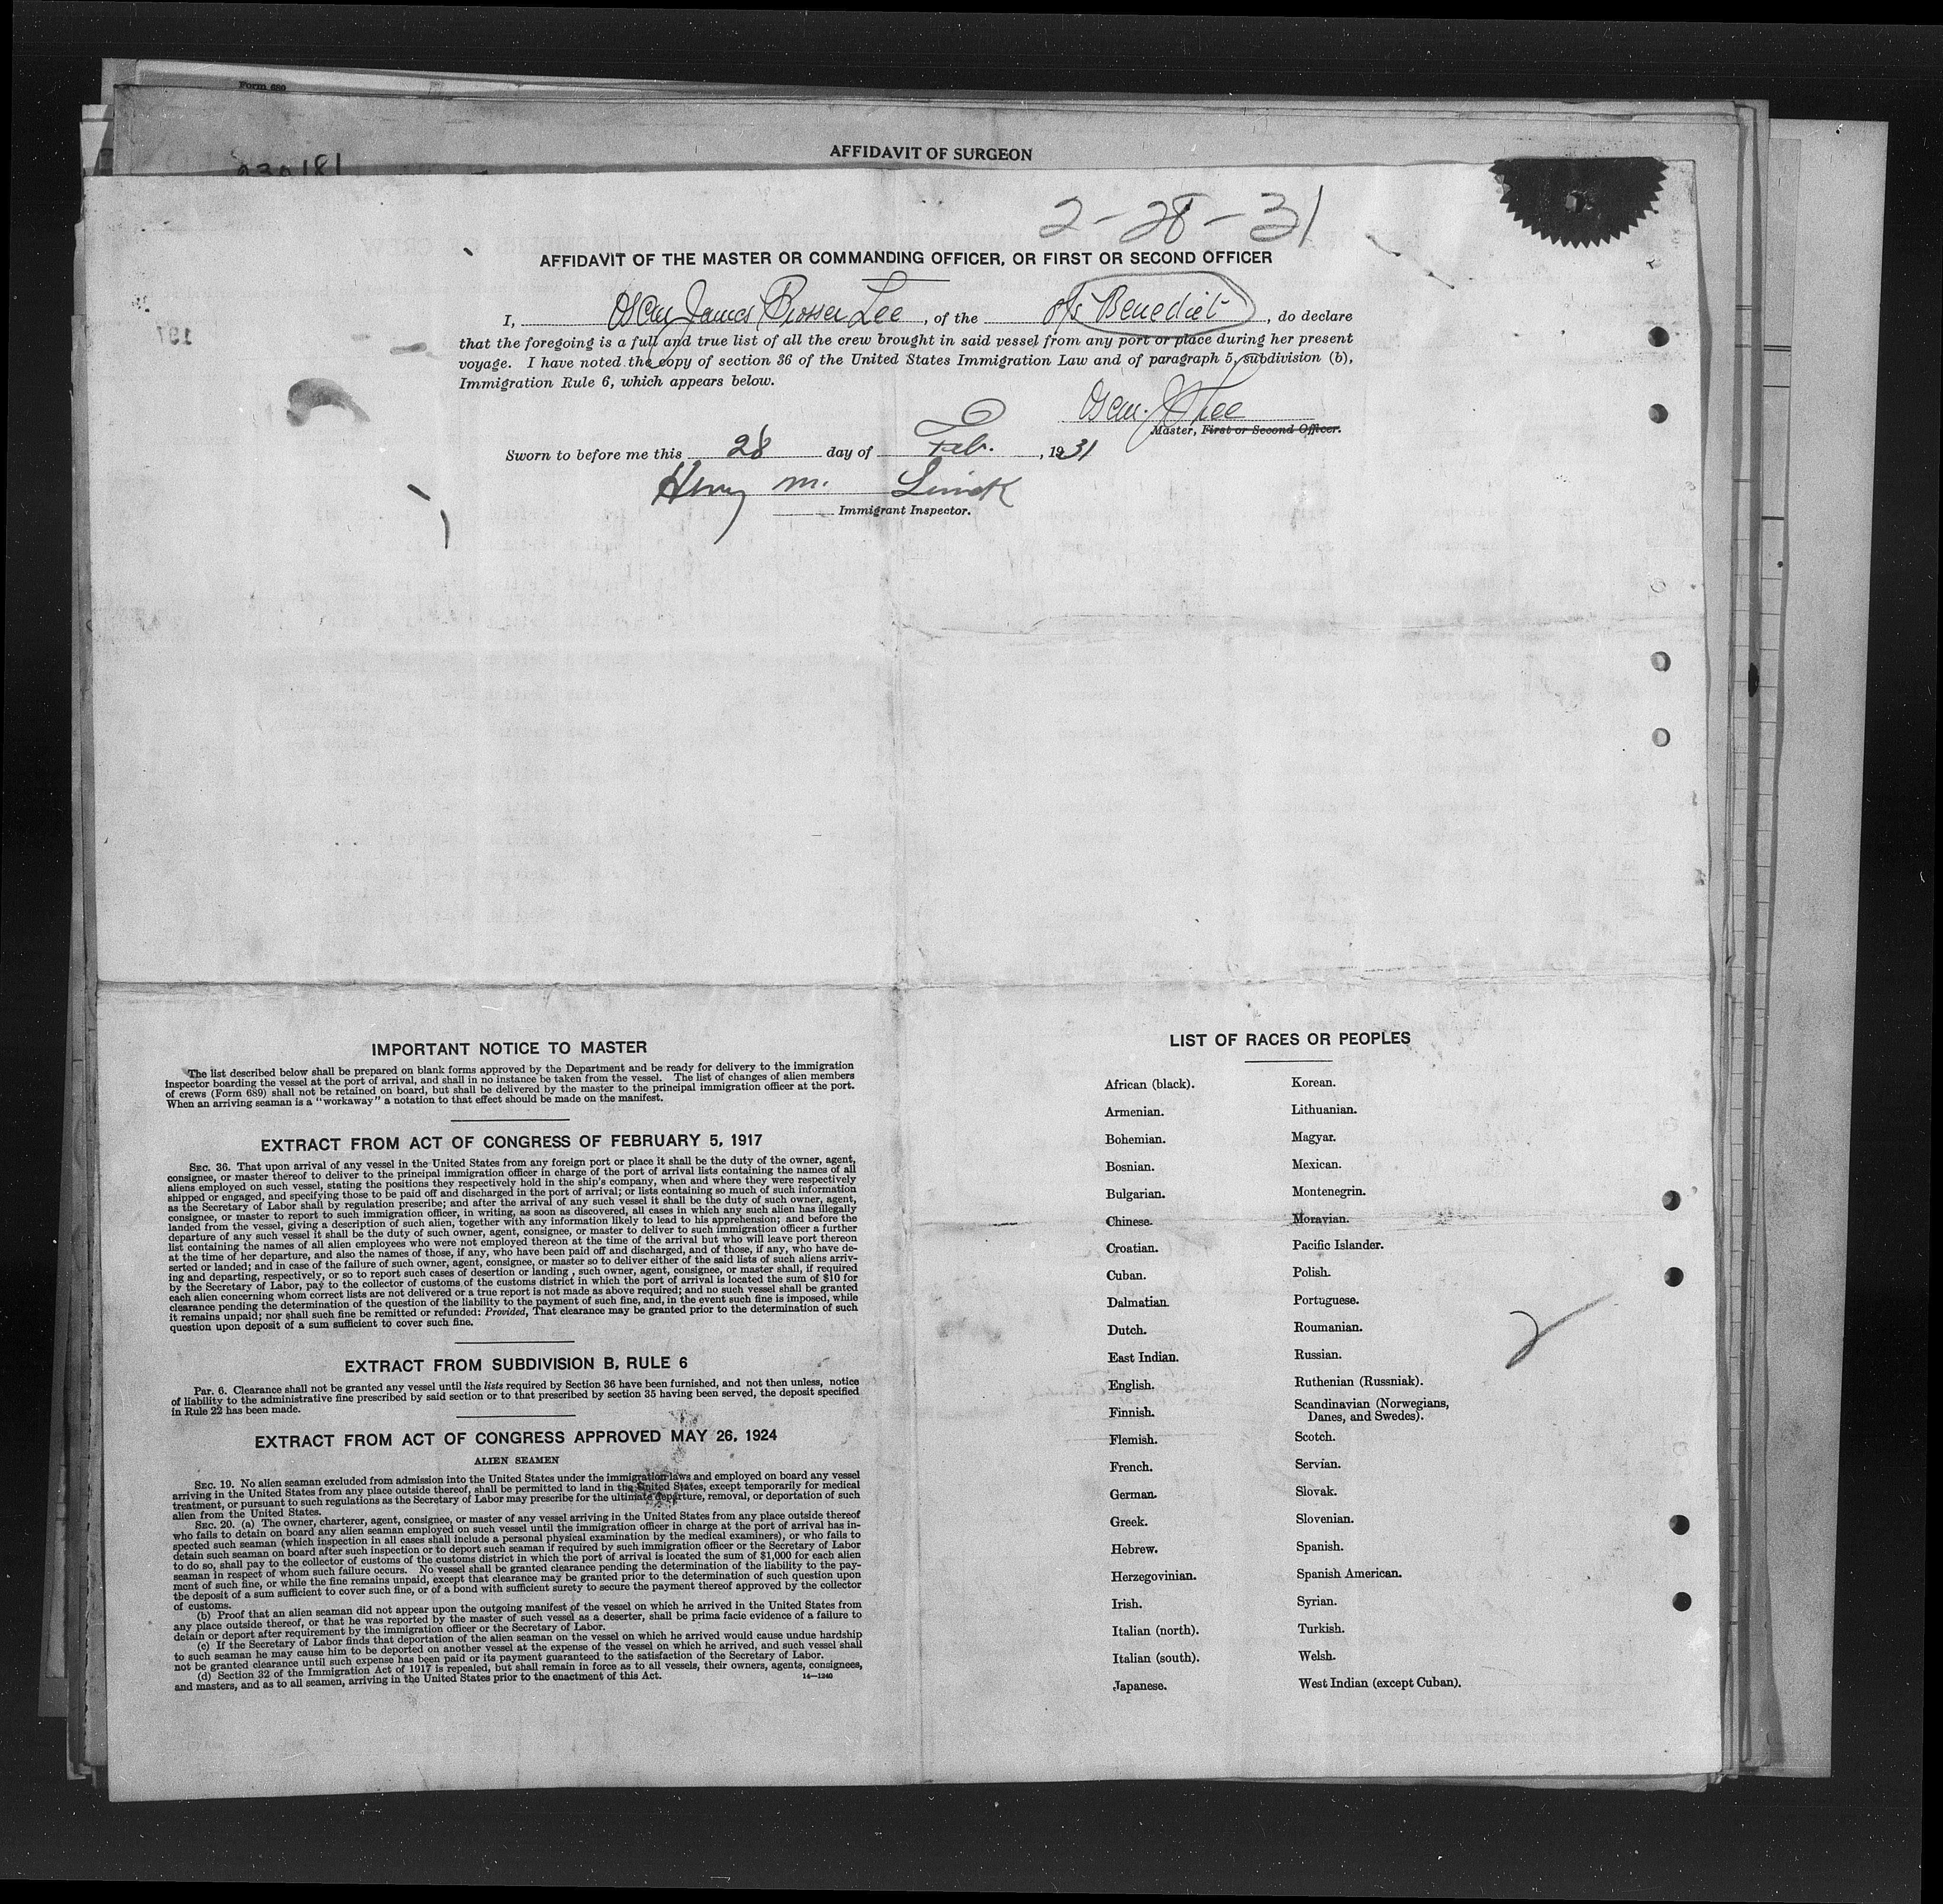 Form 689
AFFIDAVIT OF SURGEON
2-28-31
AFFIDAVIT OF THE MASTER OR COMMANDING OFFICER, OR FIRST OR SECOND OFFICER
I, Oscar James Prosser Lee, of the s/s Benedict, do declare
that the foregoing is a full and true list of all the crew brought in said vessel from any port or place during her present
voyage. I have noted the copy of section 36 of the United States Immigration Law and of paragraph 5, subdivision (b),
Immigration Rule 6, which appears below.
Oscar J P Lee
Master, First or Second Officer.
Sworn to before me this 28 day of Feb., 1931
Henry M.
Immigrant Inspector.
IMPORTANT NOTICE TO MASTER
The list described below shall be prepared on blank forms approved by the Department and be ready for delivery to the immigration
inspector boarding the vessel at the port of arrival, and shall in no instance be taken from the vessel. The list of changes of alien members
of crews (Form 689) shall not be retained on board, but shall be delivered by the master to the principal immigration officer at the port.
When an arriving seaman is a "workaway" a notation to that effect should be made on the manifest.
EXTRACT FROM ACT OF CONGRESS OF FEBRUARY 5, 1917
SEC. 36. That upon arrival of any vessel in the United States from any foreign port or place it shall be the duty of the owner, agent,
consignee, or master thereof to deliver to the principal immigration officer in charge of the port of arrival lists containing the names of all
aliens employed on such vessel, stating the positions they respectively hold in the ship's company, when and where they were respectively
shipped or engaged, and specifying those to be paid off and discharged in the port of arrival; or lists containing so much of such information
as the Secretary of Labor shall by regulation prescribe; and after the arrival of any such vessel it shall be the duty of such owner, agent,
consignee, or master to report to such immigration officer, in writing, as soon as discovered, all cases in which any such alien has illegally
landed from the vessel, giving a description of such alien, together with any information likely to lead to his apprehension; and before the
departure of any such vessel it shall be the duty of such owner, agent, consignee, or master to deliver to such immigration officer a further
list containing the names of all alien employees who were not employed thereon at the time of the arrival but who will leave port thereon
at the time of her departure, and also the names of those, if any, who have been paid off and discharged, and of those, if any, who have de-
serted or landed; and in case of the failure of such owner, agent, consignee, or master so to deliver either of the said lists of such aliens arriv-
ing and departing, respectively, or so to report such cases of desertion or landing, such owner, agent, consignee, or master, shall, if required
by the Secretary of Labor, pay to the collector of customs of the customs district in which the port of arrival is located the sum of $10 for
each alien concerning whom correct lists are not delivered or a true report is not made as above required; and no such vessel shall be granted
clearance pending the determination of the question of the liability to the payment of such fine, and, in the event such fine is imposed, while
it remains unpaid; nor shall such fine be remitted or refunded: Provided, That clearance may be granted prior to the determination of such
question upon deposit of a sum sufficient to cover such fine.
EXTRACT FROM SUBDIVISION B, RULE 6
Par. 6. Clearance shall not be granted any vessel until the lists required by Section 36 have been furnished, and not then unless, notice
of liability to the administrative fine prescribed by said section or to that prescribed by section 35 having been served, the deposit specified
in Rule 22 has been made.
EXTRACT FROM ACT OF CONGRESS APPROVED MAY 26, 1924
ALIEN SEAMEN
SEC. 19. No alien seaman excluded from admission into the United States under the immigration laws and employed on board any vessel
arriving in the United States from any place outside thereof, shall be permitted to land in the United States, except temporarily for medical
treatment, or pursuant to such regulations as the Secretary of Labor may prescribe for the ultimate departure, removal, or deportation of such
alien from the United States.
SEC. 20. (a) The owner, charterer, agent, consignee, or master of any vessel arriving in the United States from any place outside thereof
who fails to detain on board any alien seaman employed on such vessel until the immigration officer in charge at the port of arrival has in-
spected such seaman (which inspection in all cases shall include a personal physical examination by the medical examiners), or who fails to
detain such seaman on board after such inspection or to deport such seaman if required by such immigration officer or the Secretary of Labor
to do so, shall pay to the collector of customs of the customs district in which the port of arrival is located the sum of $1,000 for each alien
seaman in respect of whom such failure occurs. No vessel shall be granted clearance pending the determination of the liability to the pay-
ment of such fine, or while the fine remains unpaid, except that clearance may be granted prior to the determination of such question upon
the deposit of a sum sufficient to cover such fine, or of a bond with sufficient surety to secure the payment thereof approved by the collector
of customs.
(b) Proof that an alien seaman did not appear upon the outgoing manifest of the vessel on which he arrived in the United States from
any place outside thereof, or that he was reported by the master of such vessel as a deserter, shall be prima facie evidence of a failure to
detain or deport after requirement by the immigration officer or the Secretary of Labor.
(c) If the Secretary of Labor finds that deportation of the alien seaman on the vessel on which he arrived would cause undue hardship
to such seaman he may cause him to be deported on another vessel at the expense of the vessel on which he arrived, and such vessel shall
not be granted clearance until such expense has been paid or its payment guaranteed to the satisfaction of the Secretary of Labor.
(d) Section 32 of the Immigration Act of 1917 is repealed, but shall remain in force as to all vessels, their owners, agents, consignees,
and masters, and as to all seamen, arriving in the United States prior to the enactment of this Act.
14—1240
LIST OF RACES OR PEOPLES
African (black).
Armenian.
Bohemian.
Bosnian.
Bulgarian.
Chinese.
Croatian.
Cuban.
Dalmatian.
Dutch.
East Indian.
English.
Finnish.
Flemish.
French.
German.
Greek.
Hebrew.
Herzegovinian.
Irish.
Italian (north).
Italian (south).
Japanese.
Korean.
Lithuanian.
Magyar.
Mexican.
Montenegrin.
Moravian.
Pacific Islander.
Polish.
Portuguese.
Roumanian.
Russian.
Ruthenian (Russniak).
Scandinavian (Norwegians,
Danes, and Swedes).
Scotch.
Servian.
Slovak.
Slovenian.
Spanish.
Spanish American.
Syrian.
Turkish.
Welsh.
West Indian (except Cuban).